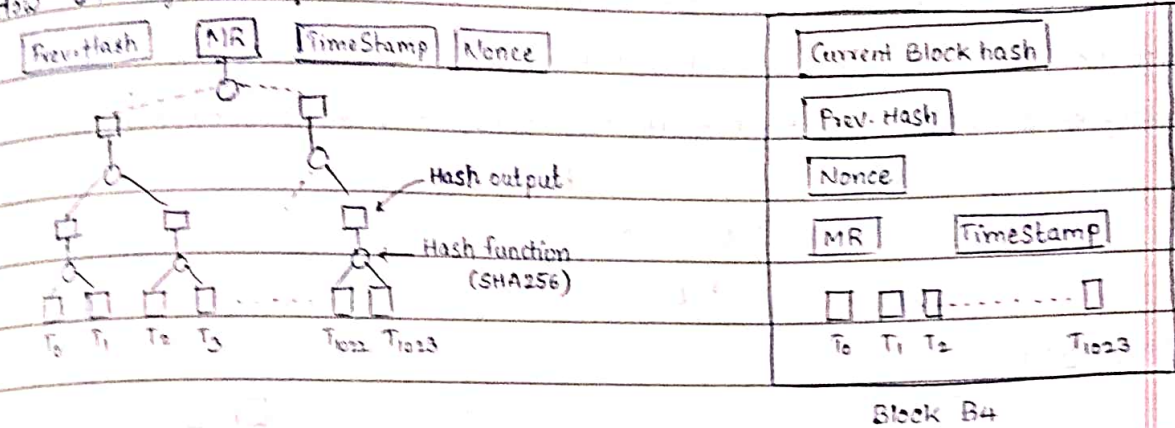 Prev. Hash MR TimeStamp Nonce
Hash output
Hash function
(SHA256)
T0 T1 T2 T3 T1022 T1023
Current Block hash
Prev. Hash
Nonce
MR TimeStamp
T0 T1 T2 T1023
Block B4